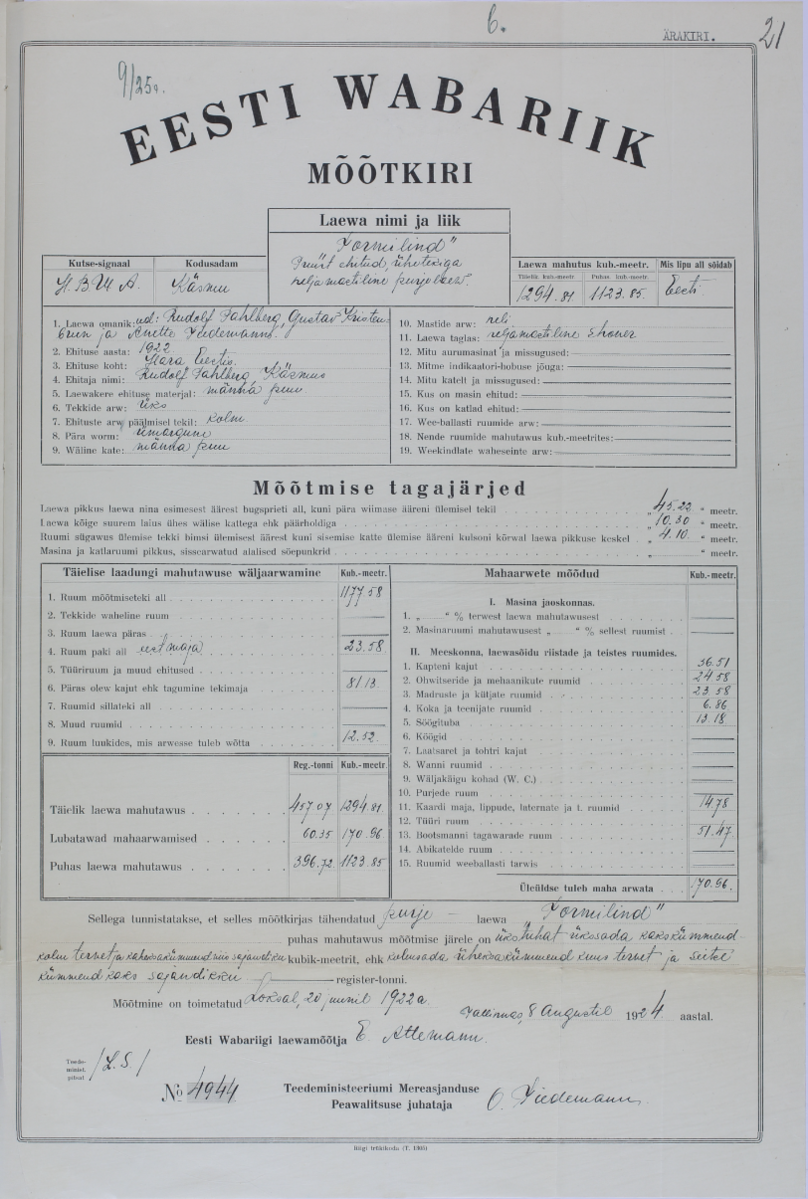 6.
ÄRAKIRI.
21
9/25a.
EESTI WABARIIK
MÕÕTKIRI
Laewa nimi ja liik
"Tormilind"
Puust ehitud, ühetekiga
neljamastiline purjelaew.
Kutse-signaal
Kodusadam
Käsmu
Laewa mahutus kub.-meetr.
Täielik kub.-meetr
Puhas kub.-meetr.
1294.81
1123.85.
Mis lipu all sõidab
Eesti
1. Laewa omanik: ud: Rudolf Pahlberg, Gustav Kristen-
brun ja Anette Tiedemann.
2. Ehituse aasta: 1922
3. Ehituse koht: Eestis.
4. Ehitaja nimi: Rudolf Pahlberg, Käsmus
5. Laewakere ehituse materjal: männa puu
6. Tekkide arw: üks
7. Ehituste arw päälmisel tekil: kolm
8. Pära worm: ümargune
9. Wäline kate: männa puu
10. Mastide arw: neli
11. Laewa taglas: neljamastiline shoner
12. Mitu aurumasinat ja missugused:
13. Mitme indikaatori-hobuse jõuga:
14. Mitu katelt ja missugused:
15. Kus on masin ehitud:
16. Kus on katlad ehitud:
17. Wee-ballasti ruumide arw:
18. Nende ruumide mahutawus kub.-meetrites:
19. Weekindlate waheseinte arw:
Mõõtmise tagajärjed
Laewa pikkus laewa nina esimesest äärest bugsprieti all, kuni pära wiimase ääreni ülemisel tekil „ 45.22 “ meetr.
Laewa kõige suurem laius ühes wälise kattega ehk päärholdiga „ 10.30 “ meetr.
Ruumi sügawus ülemise tekki bimsi ülemisest äärest kuni sisemise katte ülemise ääreni kulsoni kõrwal laewa pikkuse keskel „ 4.10 “ meetr.
Masina ja katlaruumi pikkus, sissearwatud alalised söepunkrid „ “ meetr.
Täielise laadungi mahutawuse wäljaarwamine
Kub.-meetr.
1. Ruum mõõtmiseteki all 1177.58
2. Tekkide waheline ruum
3. Ruum laewa päras
4. Ruum paki all eestmaja 23.58
5. Tüüriruum ja muud ehitused
6. Päras olew kajut ehk tagumine tekimaja 81.13
7. Ruumid sillateki all
8. Muud ruumid
9. Ruum luukides, mis arwesse tuleb wõtta 12.52
Reg.-tonni
Kub.-meetr.
Täielik laewa mahutawus 457.07 1294.81
Lubatawad mahaarwamised 60.35 170.96
Puhas laewa mahutawus 396.72 1123.85
Mahaarwete mõõdud
Kub.-meetr.
I. Masina jaoskonnas.
1. „ “ % terwest laewa mahutawusest
2. Masinaruumi mahutawusest „ “ % sellest ruumist
II. Meeskonna, laewasõidu riistade ja teistes ruumides.
1. Kapteni kajut 36.51
2. Ohwitseride ja mehaanikute ruumid 24.58
3. Madruste ja kütjate ruumid 23.58
4. Koka ja teenijate ruumid 6.86
5. Söögituba 13.18
6. Köögid
7. Laatsaret ja tohtri kajut
8. Wanni ruumid
9. Wäljakäigu kohad (W. C.)
10. Purjede ruum
11. Kaardi maja, lippude, laternate ja t. ruumid 14.78
12. Tüüri ruum
13. Bootsmanni tagawarade ruum 51.47
14. Abikatelde ruum
15. Ruumid weeballasti tarwis
Üleüldse tuleb maha arwata 170.96.
Sellega tunnistatakse, et selles mõõtkirjas tähendatud purje- laewa „Tormilind"
puhas mahutawus mõõtmise järele on ükstuhat ükssada kakskümmend-
kolm tervet ja kaheksakümmend wiis sajandikku kubik-meetrit, ehk kolmsada üheksakümmend kuus tervet ja seitse
kümmend kaks sajandikku register-tonni.
Mõõtmine on toimetatud Loksal, 20 juunil 1922 a.
Tallinnas, 8 Augustil 1924 aastal.
Eesti Wabariigi laewamõõtja E. Attemann.
Teede-
minist.
pitsat
/L.S./
№ 4944
Teedeministeeriumi Mereasjanduse
Peawalitsuse juhataja
O. Tiedemann
Riigi trükikoda (T. 1305)